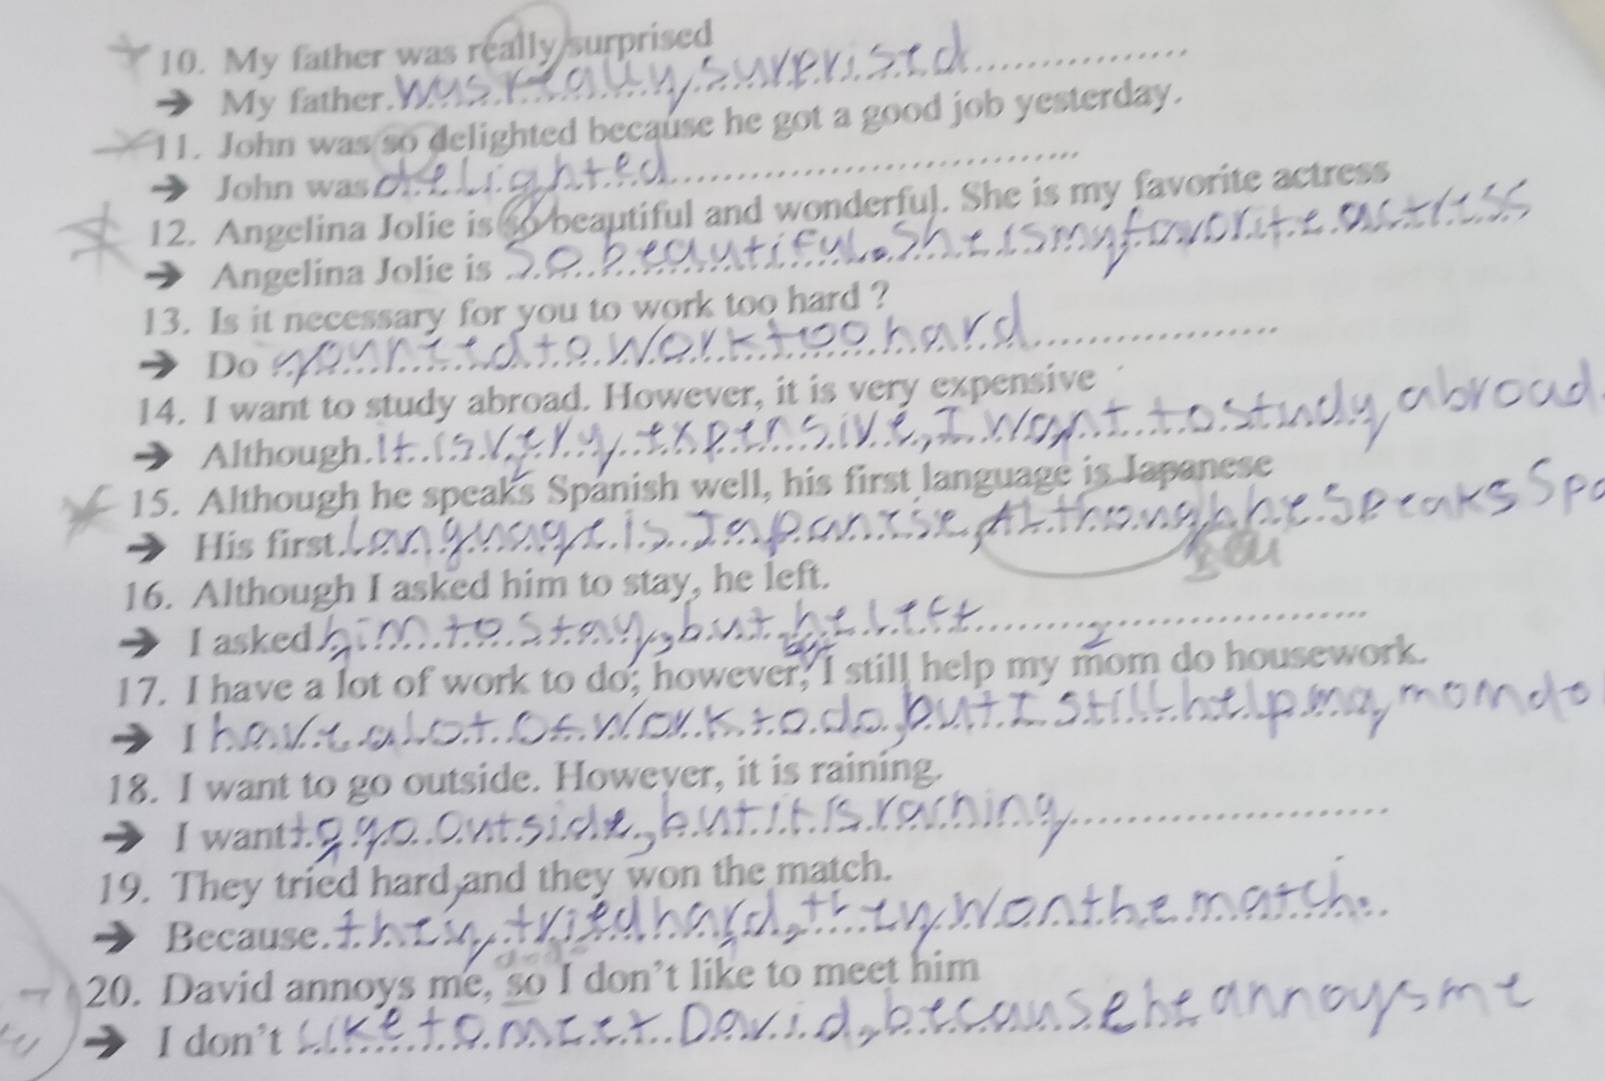 10. My father was really surprised
➔ My father was really surprised
11. John was so delighted because he got a good job yesterday.
➔ John was delighted
12. Angelina Jolie is so beautiful and wonderful. She is my favorite actress
➔ Angelina Jolie is so beautiful. She is my favorite actress
13. Is it necessary for you to work too hard ?
➔ Do you need to work too hard
14. I want to study abroad. However, it is very expensive
➔ Although it is very expensive, I want to study abroad
15. Although he speaks Spanish well, his first language is Japanese
➔ His first language is Japanese, Although he speaks Spa
16. Although I asked him to stay, he left.
➔ I asked him to stay, but he left
but 2
17. I have a lot of work to do; however, I still help my mom do housework.
➔ I have a lot of work to do, but I still help my mom do
18. I want to go outside. However, it is raining.
➔ I want to go outside, but it is raining
19. They tried hard and they won the match.
➔ Because they tried hard, they won the match.
20. David annoys me, so I don't like to meet him
➔ I don't like to meet David, because he annoys me